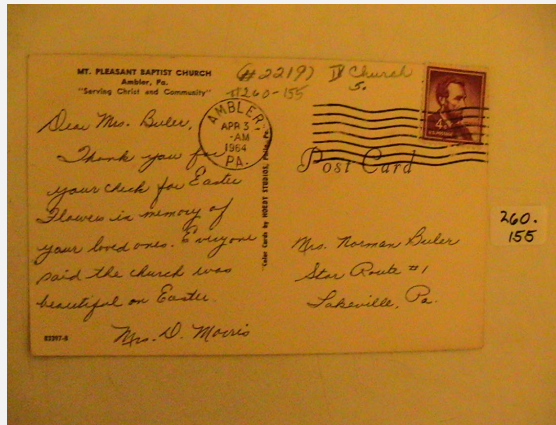 MT. PLEASANT BAPTIST CHURCH
Ambler, Pa.
"Serving Christ and Community"
(#2219) IV Church
#260-155 5.
AMBLER
APR 3
-AM
1964
PA.
4¢
Post Card
Dear Mrs. Buler,
Thank you for
your check for Easter
Flowers in memory of
your loved ones. Everyone
said the church was
beautiful on Easter.
Mrs. D. Morris
83397-B
Color Cards by HOEDT STUDIOS, Phila. Pa.
Mrs. Norman Buler
Star Route #1
Lakeville, Pa.
260.
155